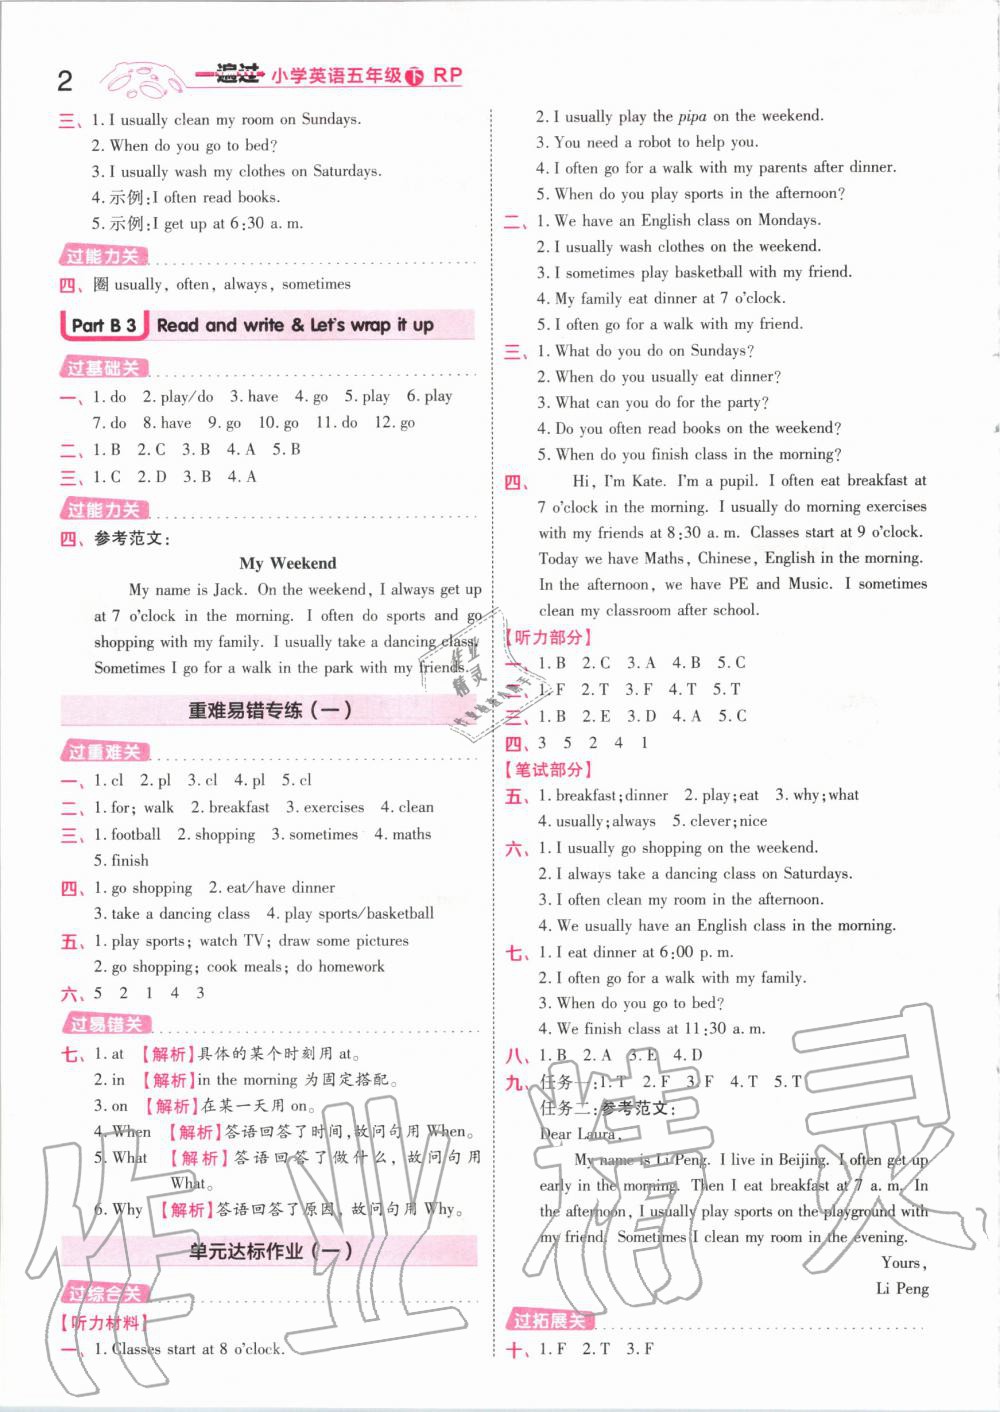 2
一遍过 小学英语五年级 下 RP
三、1. I usually clean my room on Sundays.
2. When do you go to bed?
3. I usually wash my clothes on Saturdays.
4. 示例:I often read books.
5. 示例:I get up at 6:30 a. m.
过能力关
四、圈 usually, often, always, sometimes
Part B 3 Read and write & Let's wrap it up
过基础关
一、1. do 2. play/do 3. have 4. go 5. play 6. play
7. do 8. have 9. go 10. go 11. do 12. go
二、1. B 2. C 3. B 4. A 5. B
三、1. C 2. D 3. B 4. A
过能力关
四、参考范文:
My Weekend
My name is Jack. On the weekend, I always get up
at 7 o'clock in the morning. I often do sports and go
shopping with my family. I usually take a dancing class.
Sometimes I go for a walk in the park with my friends.
重难易错专练(一)
过重难关
一、1. cl 2. pl 3. cl 4. pl 5. cl
二、1. for; walk 2. breakfast 3. exercises 4. clean
三、1. football 2. shopping 3. sometimes 4. maths
5. finish
四、1. go shopping 2. eat/have dinner
3. take a dancing class 4. play sports/basketball
五、1. play sports; watch TV; draw some pictures
2. go shopping; cook meals; do homework
六、5 2 1 4 3
过易错关
七、1. at 【解析】具体的某个时刻用 at。
2. in 【解析】in the morning 为固定搭配。
3. on 【解析】在某一天用 on。
4. When 【解析】答语回答了时间,故问句用 When。
5. What 【解析】答语回答了做什么,故问句用
What。
6. Why 【解析】答语回答了原因,故问句用 Why。
单元达标作业(一)
过综合关
【听力材料】
一、1. Classes start at 8 o'clock.
2. I usually play the pipa on the weekend.
3. You need a robot to help you.
4. I often go for a walk with my parents after dinner.
5. When do you play sports in the afternoon?
二、1. We have an English class on Mondays.
2. I usually wash clothes on the weekend.
3. I sometimes play basketball with my friend.
4. My family eat dinner at 7 o'clock.
5. I often go for a walk with my friend.
三、1. What do you do on Sundays?
2. When do you usually eat dinner?
3. What can you do for the party?
4. Do you often read books on the weekend?
5. When do you finish class in the morning?
四、Hi, I'm Kate. I'm a pupil. I often eat breakfast at
7 o'clock in the morning. I usually do morning exercises
with my friends at 8:30 a. m. Classes start at 9 o'clock.
Today we have Maths, Chinese, English in the morning.
In the afternoon, we have PE and Music. I sometimes
clean my classroom after school.
【听力部分】
一、1. B 2. C 3. A 4. B 5. C
二、1. F 2. T 3. F 4. T 5. T
三、1. B 2. E 3. D 4. A 5. C
四、3 5 2 4 1
【笔试部分】
五、1. breakfast;dinner 2. play;eat 3. why;what
4. usually;always 5. clever;nice
六、1. I usually go shopping on the weekend.
2. I always take a dancing class on Saturdays.
3. I often clean my room in the afternoon.
4. We usually have an English class in the morning.
七、1. I eat dinner at 6:00 p. m.
2. I often go for a walk with my family.
3. When do you go to bed?
4. We finish class at 11:30 a. m.
八、1. B 2. A 3. E 4. D
九、任务一:1. T 2. F 3. F 4. T 5. T
任务二:参考范文:
Dear Laura,
My name is Li Peng. I live in Beijing. I often get up
early in the morning. Then I eat breakfast at 7 a. m. In
the afternoon, I usually play sports on the playground with
my friend. Sometimes I clean my room in the evening.
Yours,
Li Peng
过拓展关
十、1. F 2. T 3. F
作业精灵